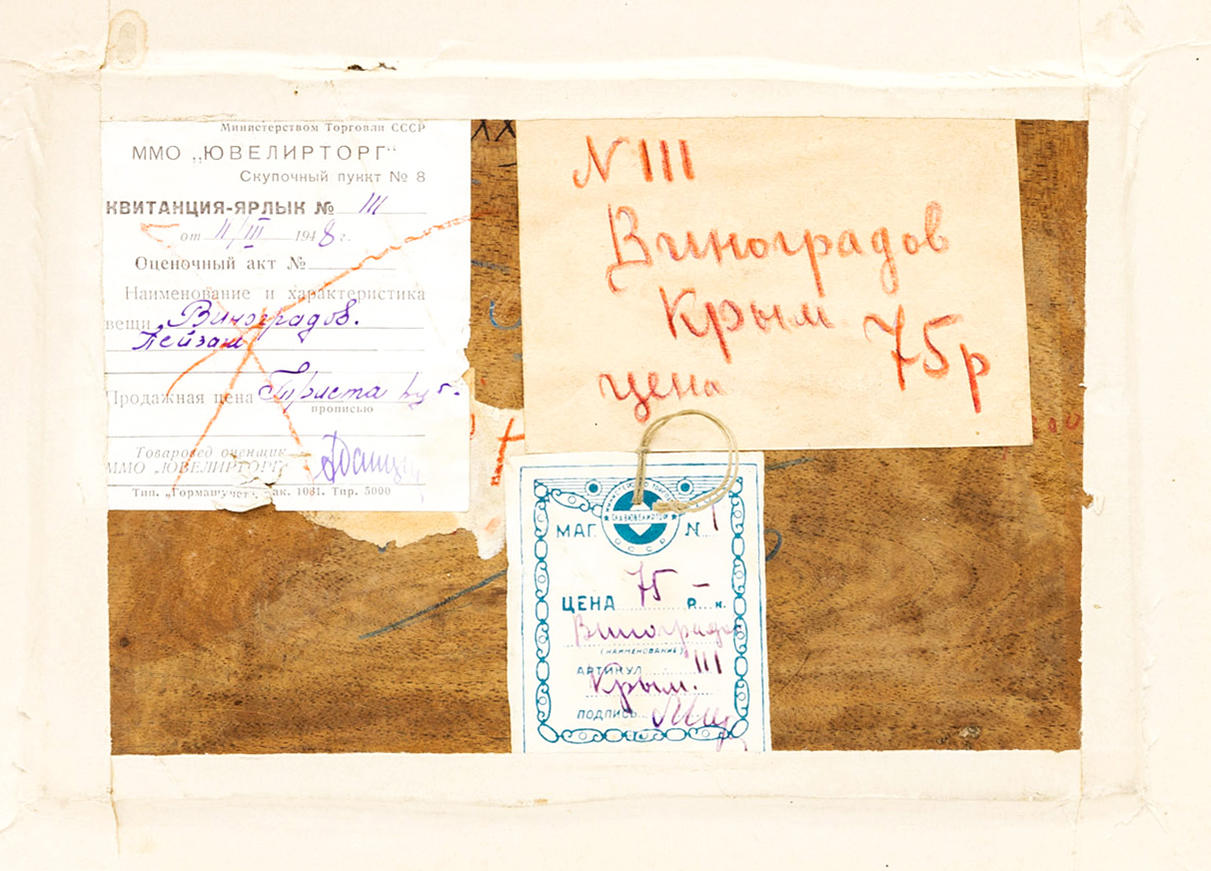 Министерством Торговли СССР
ММО „ЮВЕЛИРТОРГ“
Скупочный пункт № 8
КВИТАНЦИЯ-ЯРЛЫК № 111
от 11/III 1948 г.
Оценочный акт №
Наименование и характеристика
вещи Виноградов.
Пейзаж
Продажная цена Триста руб.
прописью
Товаровед оценщик
ММО „ЮВЕЛИРТОРГ“
Тип. „Гормашучет“ Зак. 1031. Тир. 5000
XX
N 111
Виноградов
Крым
75р
цена
ГЛАВЮВЕЛИРТОРГ
СССР
МАГ. N 1
ЦЕНА 75 – Р. к.
Виноградов
(НАИМЕНОВАНИЕ)
АРТИКУЛ 111
Крым.
ПОДПИСЬ